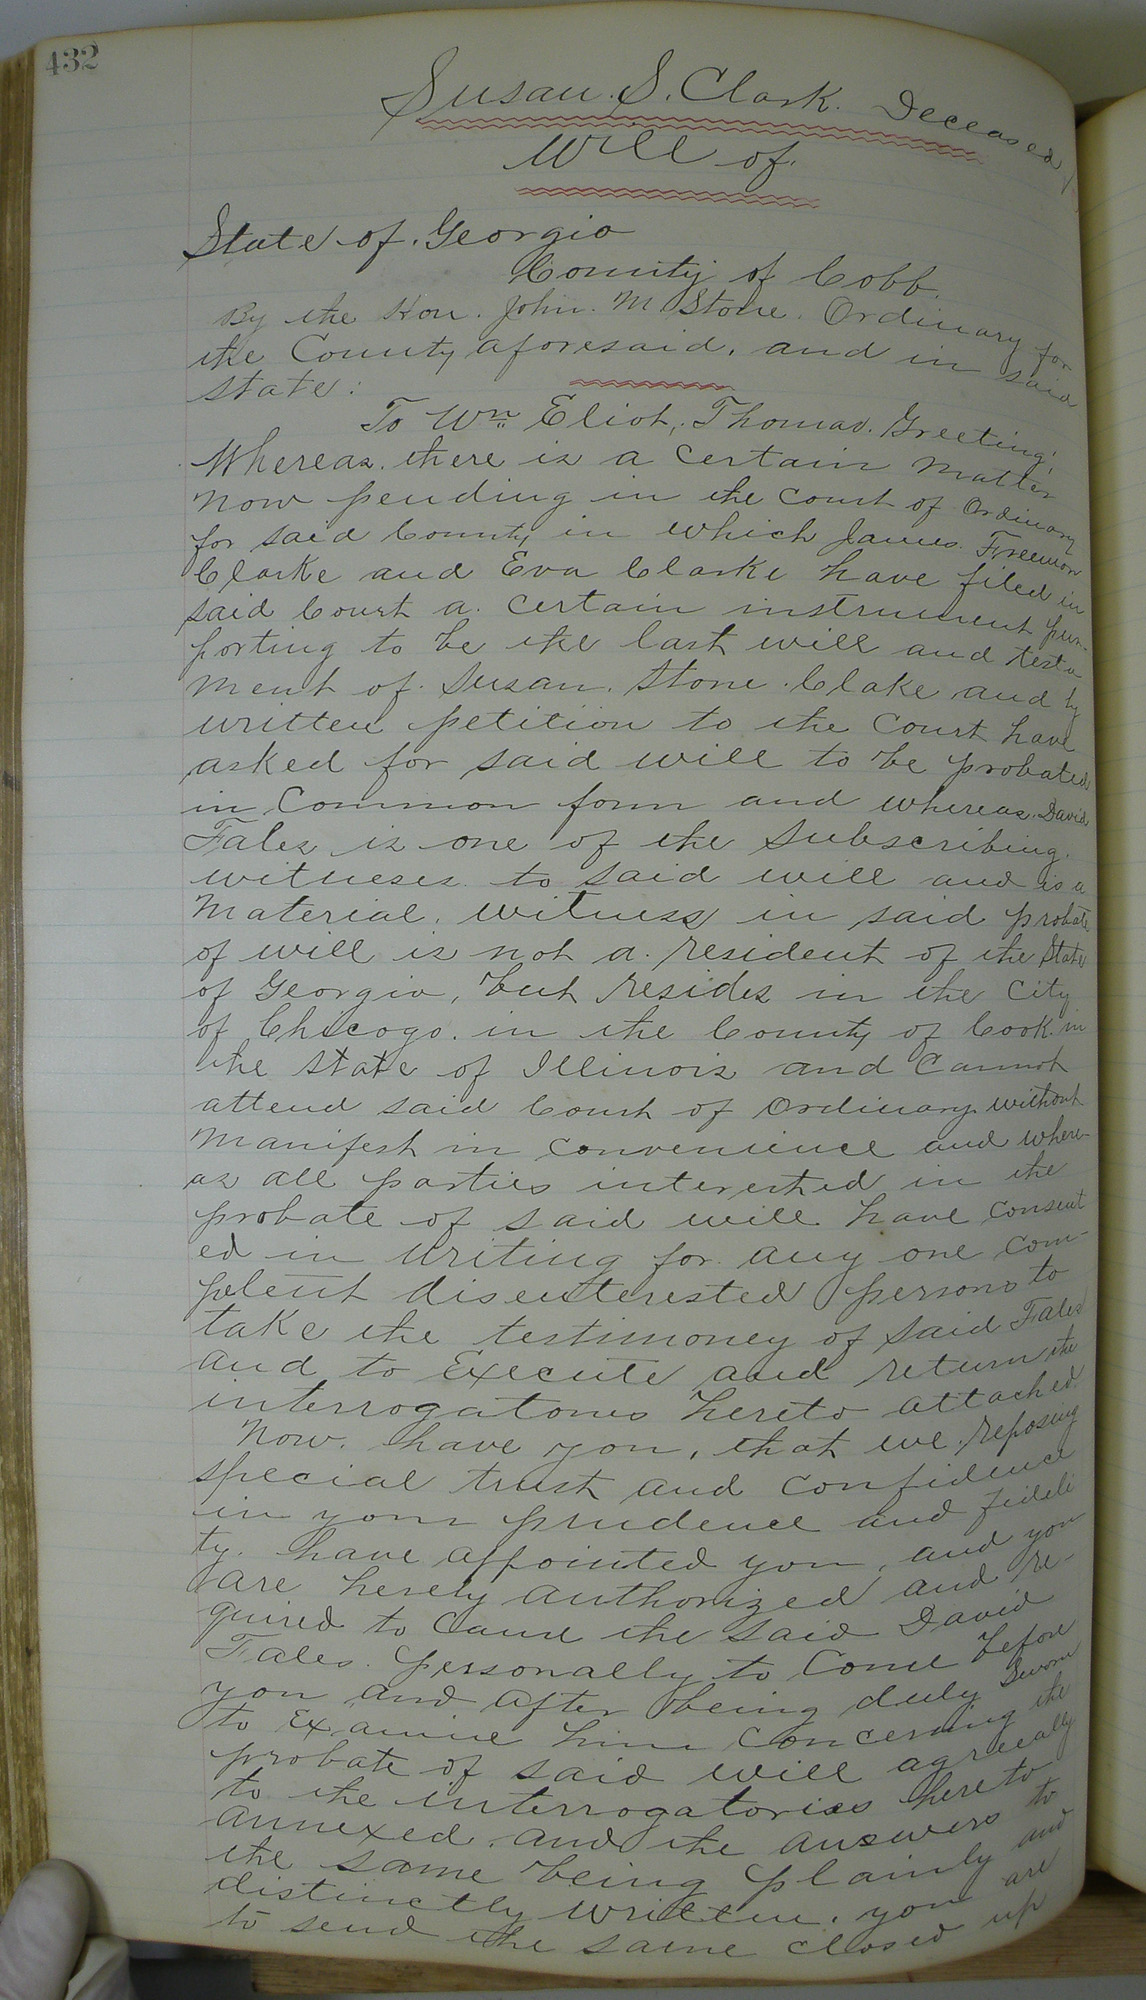 432
Susan. S. Clark. Deceased
Will of.
State of. Georgia
County of Cobb.
By the Hon. John. M Stone. Ordinary for
the County aforesaid. and in said
state:
To Wm Eliot,. Thomas. Greeting;
Whereas. there is a certain matter
now pending in the court of Ordinary
for said County in which James. Freemon
Clarke and Eva Clarke have filed in
said Court a. certain instrument pur-
porting to be the last will and testa
ment of. Susan. Stone. Clake and by
written petition to the Court have
asked for said will to be probated
in Common form and whereas. David
Fales is one of the Subscribing.
witneses. to said will and is a
Material. witness in said probate
of will is not a. resident of the State
of Georgia, but resides in the City
of Chicogo. in the County of Cook in
the State of Illinois and Cannot
attend said Court of Ordinary without
manifest in convenience and where-
as all parties interested in the
probate of said will have consent
ed in writing for. any one com-
petent disenterested persons to
take the testimoney of said Fales
and to Execute and return the
interrogatories hereto attached
Now. have you, that we. reposing
special trust and confidence
in your prudence and fideli
ty. have appointed you, and you
are hereby authorized and re-
quired to Cause the said David
Fales. personally to Come before
you and after being duly Sworn
to Examine him Concerning the
probate of said will agreeally
to the interrogatories hereto
annexed. and the answers to
the same being plainly and
distinctly written. you are
to send the same closed up